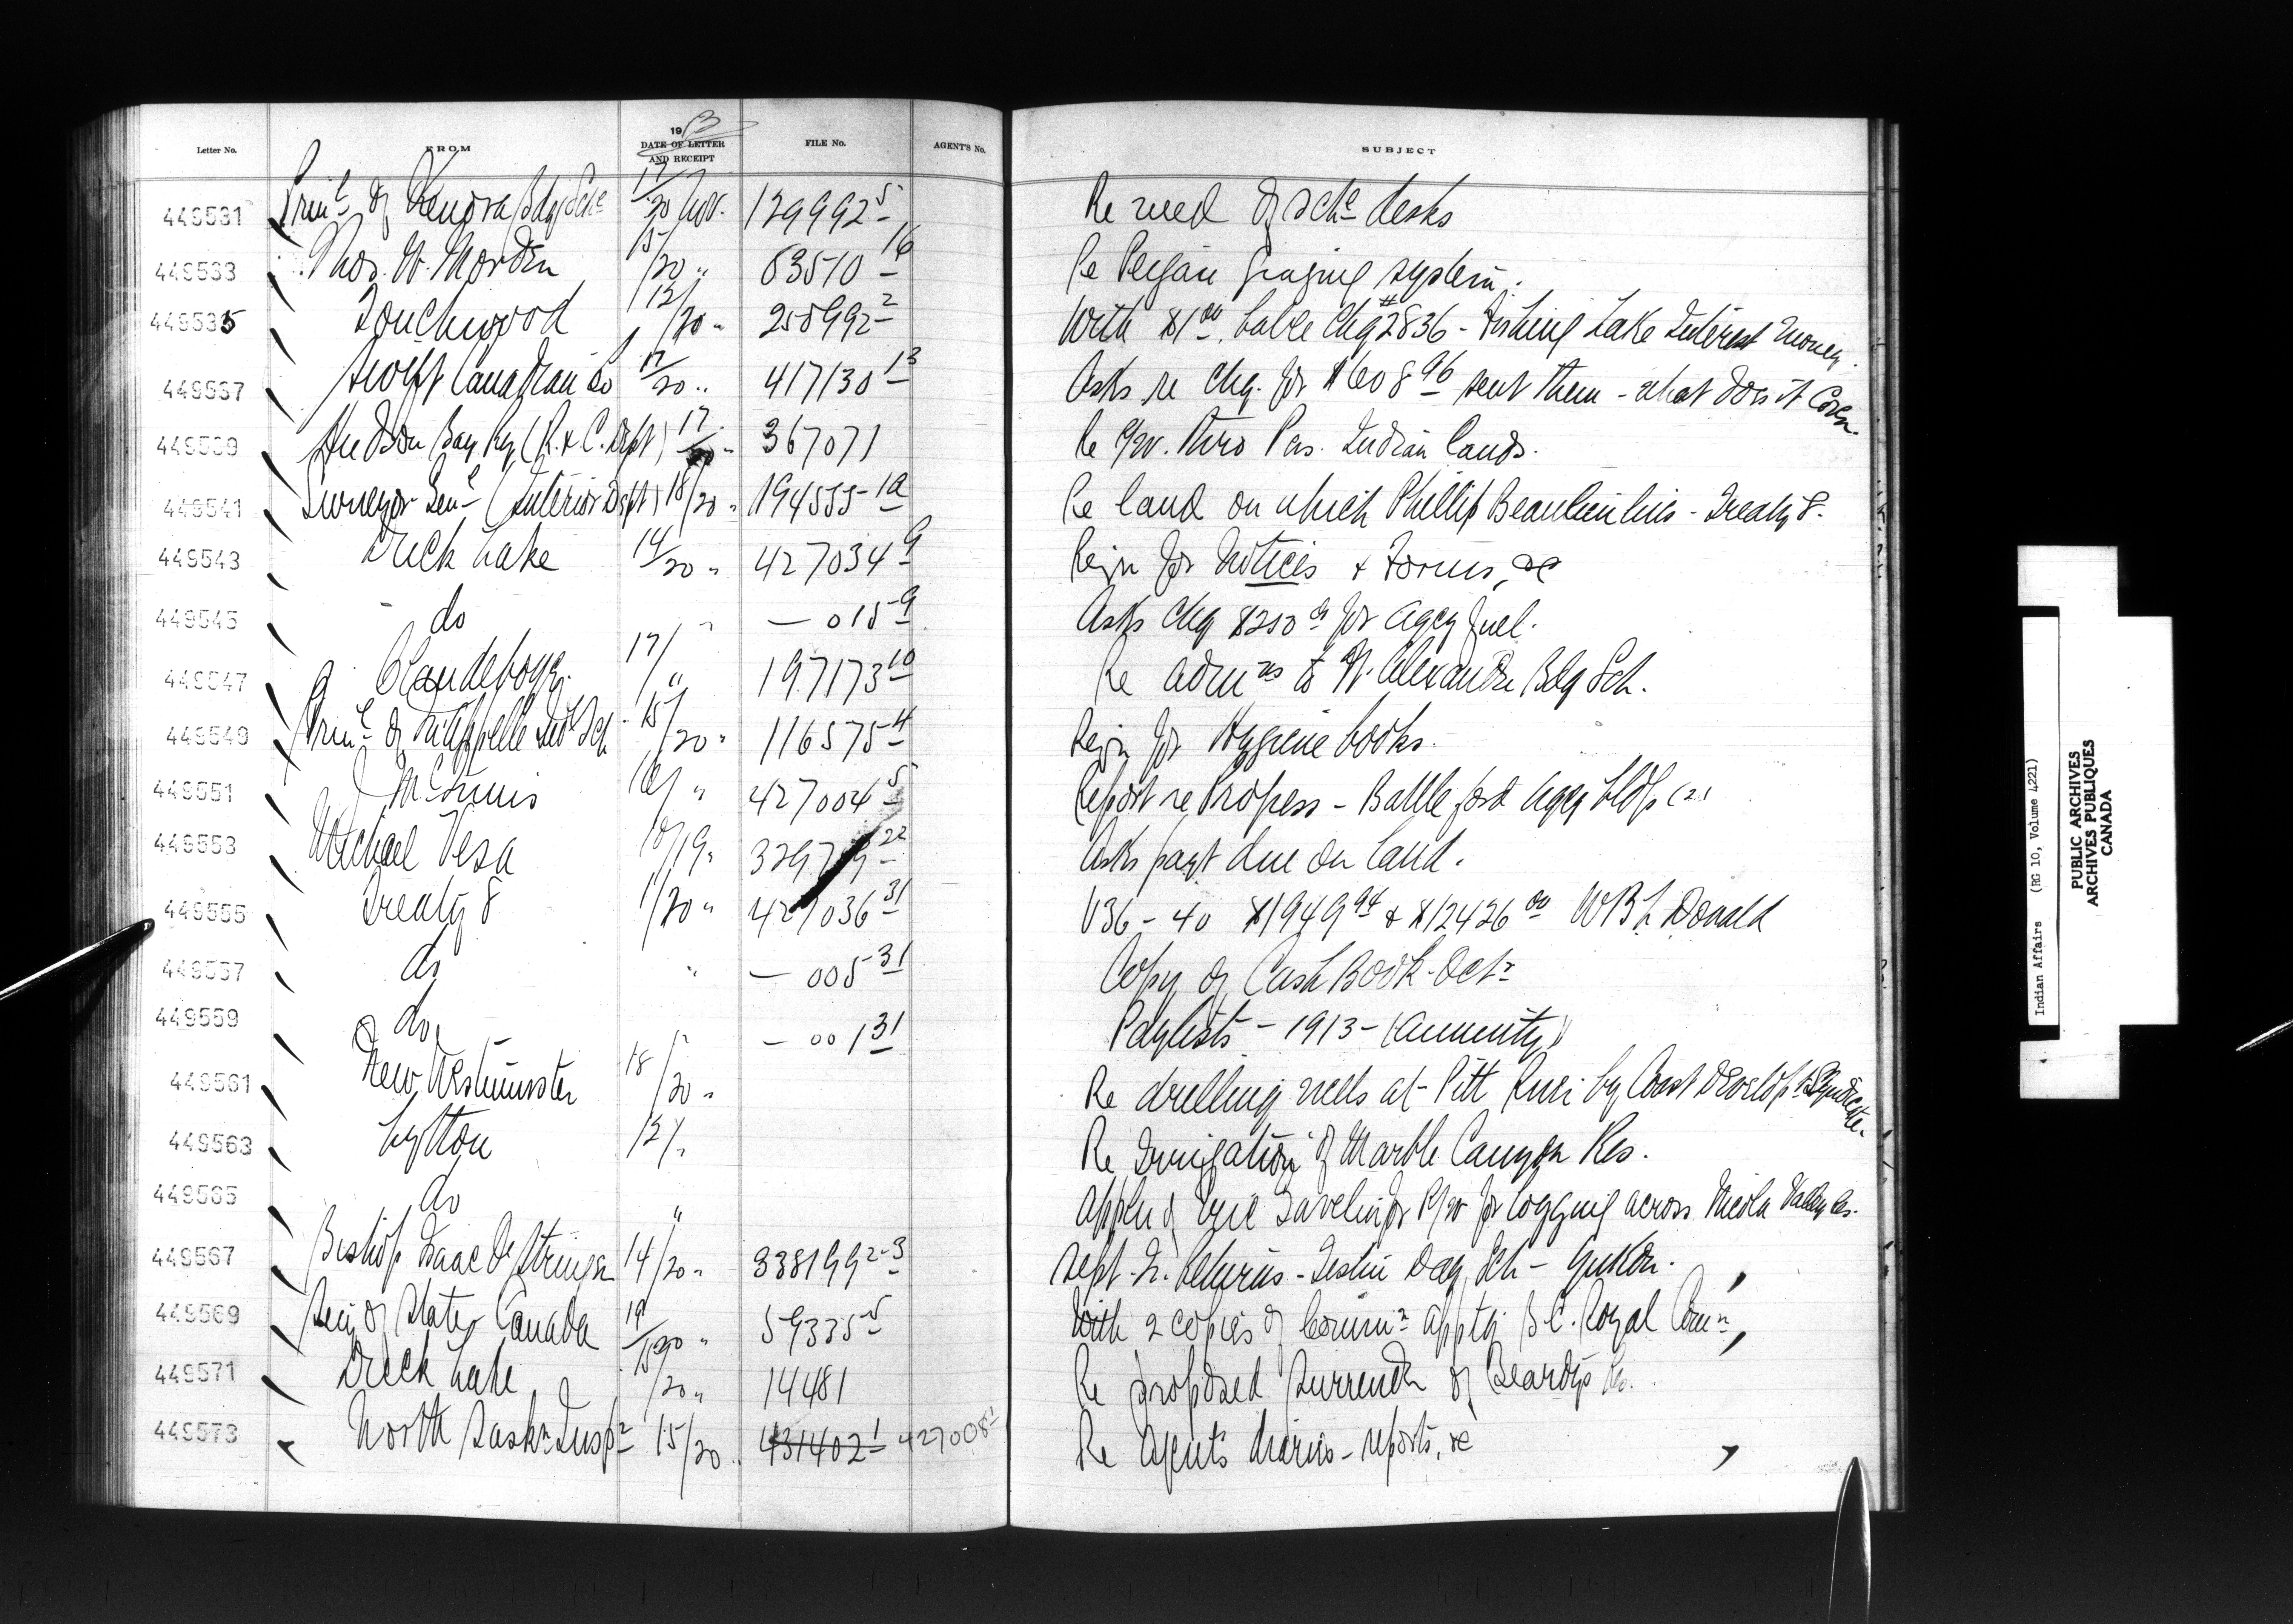 Letter No. FROM 1913 DATE OF LETTER AND RECEIPT FILE No. AGENT'S No. SUBJECT
449531 Prinl of Kenora Bdg Schl 17/20 Nov. 129992-5 Re need of schl desks
449533 Thos. W. Morden 15/20 " 63510-16 Re Peigan grazing system.
449535 Touchwood 12/20 " 258992-2 With $1.00 balce Chq #2836 - Fishing Lake Interest money.
449537 Swift Canadian Co 17/20 " 417130-13 Asks re chq. for $608.96 sent them - what does it cover.
449539 Hudson Bay Ry (R. & C. Dept) 17/20 " 367071 Re R/W. thro Pas. Indian lands.
449541 Surveyor Genl (Interior Dept) 18/20 " 194555-1a Re land on which Phillip Beaulieu lives - Treaty 8.
449543 Duck Lake 14/20 " 427034-9 Reqn for Notices & Forms, &c
449545 do " — 015-9 Asks chq $250.00 for agcy fuel.
449547 Clandeboye. 17/ " 197173-10 Re admns to N. Alexandre Bdg Sch.
449549 Prinl of Qu'Appelle Indl Sch 15/20 " 116575-4 Reqn for Hygiene books.
449551 J McInnis " 427004-5 Report re Progress - Battleford Agcy bldgs (2)
449553 Michael Vesa 10/19 " -22 Asks payt due on land.
449555 Treaty 8 1/20 " 427036-31 V36 - 40 $1949.94 & $12426.00 W B L Donald
449557 do " — 005-31 Copy of Cash Book - Octr
449559 do " — 001-31 Paylists - 1913 - (Annuity)
449561 New Westminster 18/20 " Re drilling wells at Pitt River by Coast Developt Syndicate.
449563 Lytton 12/ " Re Irrigation of Marble Canyon Res.
449565 do " Appln of Eric Gavelin for R/W for logging across Nicola Valley Res.
449567 Bishop Isaac O. Stringer 14/20 " 338199-2-3 Sept. Qr. Returns - Teslin Day Sch - Yukon.
449569 Secy of State, Canada 19/20 " 59335-5 With 2 copies of Commn apptg B C. Royal Comn
449571 Duck Lake 15/20 " 14481 Re proposed surrender of Beardys Res.
449573 North Saskn Inspr 15/20 " 431402-1 427008-1 Re Agents diaries - reports, &c
Indian Affairs (RG 10, Volume 4221)
PUBLIC ARCHIVES
ARCHIVES PUBLIQUES
CANADA